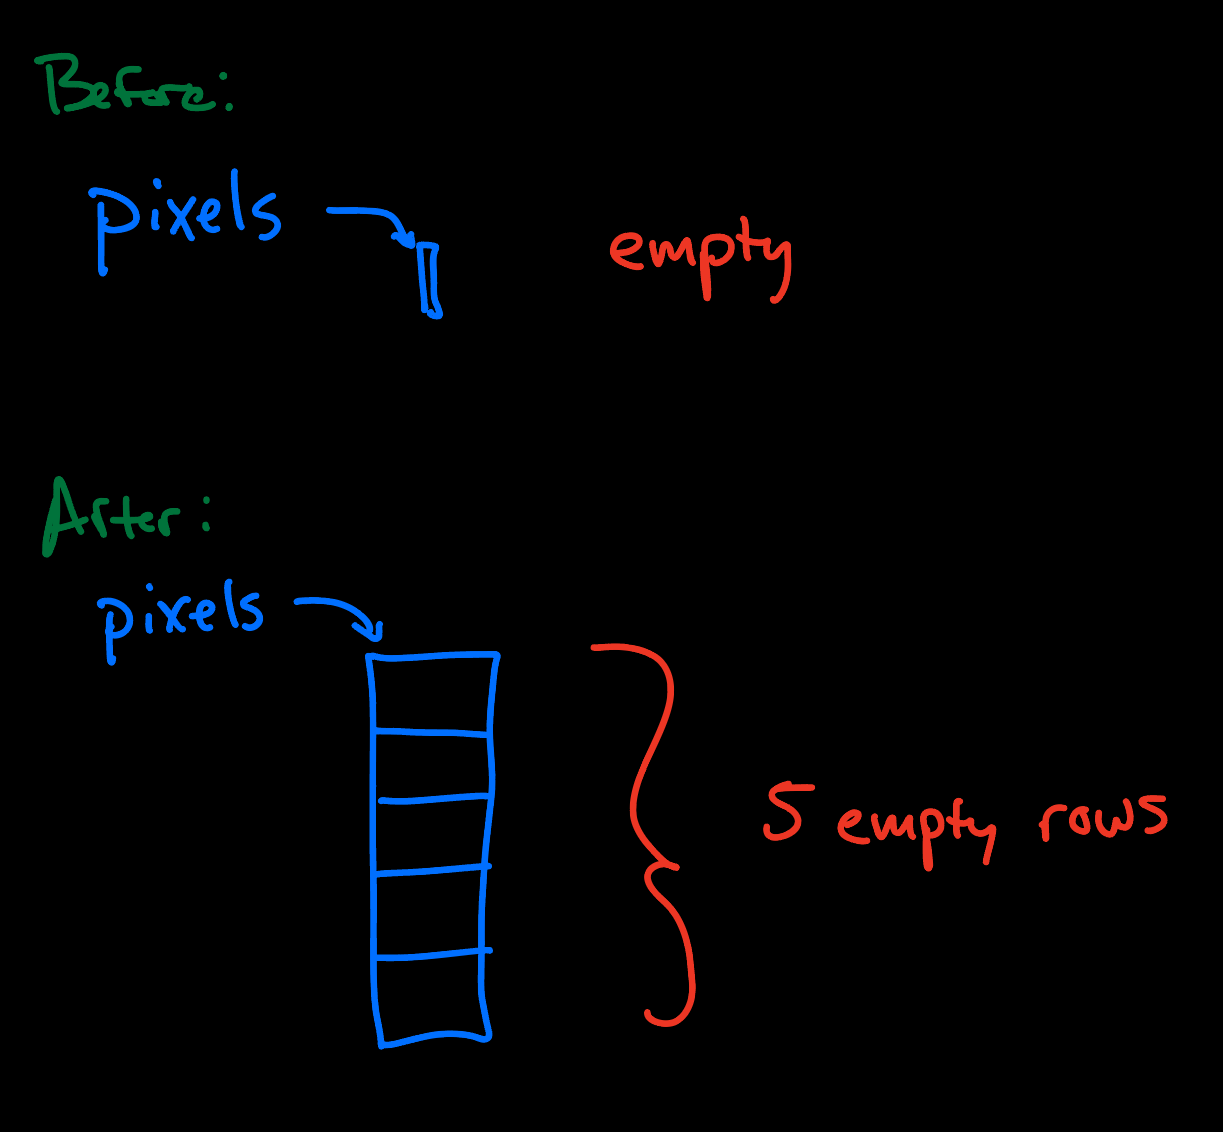 Before:
pixels
empty
After:
pixels
5 empty rows